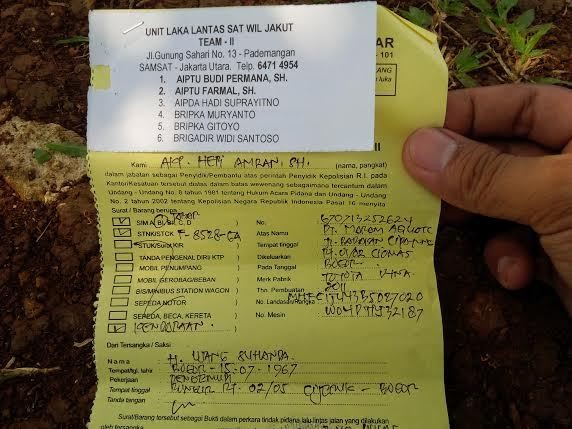 UNIT LAKA LANTAS SAT WIL JAKUT
TEAM - II
Jl.Gunung Sahari No. 13 - Pademangan
SAMSAT - Jakarta Utara. Telp. 6471 4954
1. AIPTU BUDI PERMANA, SH.
2. AIPTU FARMAL, SH.
3. AIPDA HADI SUPRAYITNO
4. BRIPKA MURYANTO
5. BRIPKA GITOYO
6. BRIGADIR WIDI SANTOSO
AR
- 101
ANG
luka
II
Kami AKP. HERI AMRAN, SH. (nama, pangkat)
dalam jabatan sebagai Penyidik/Pembantu atas perintah Penyidik Kepolisian R.I. pada
Kantor/Kesatuan tersebut diatas dalam batas wewenang sebagaimana tercantum dalam
Undang - Undang No. 8 tahun 1981 tentang Hukum Acara Pidana dan Undang - Undang -
No. 2 tahun 2002 tentang Kepolisian Negara Republik Indonesia Pasal 16 menyita
Surat / Barang berupa
SIM A, BI, BII, C, D ) No. 670713252624
STNK/STCK F-8528-CA Atas Nama PT.
STUK/Surat KIR Tempat tinggal
TANDA PENGENAL DIRI/ KTP ) Dikeluarkan CIOMAS
MOBIL PENUMPANG ) Pada Tanggal BOGOR
MOBIL GEROBAG/BEBAN ) Merk Pabrik
BIS/MINIBUS STATION WAGON ) Thn. Pembuatan 2011
SEPEDA MOTOR ) No. Landasan/Rangka
SEPEDA, BECA, KERETA ) No. Mesin
KENDARAAN )
Dari Tersangka / Saksi
Nama H. UTANG SUHANDA
Tempat/tgl. lahir BOGOR - 15-07-1967
Pekerjaan
Tempat tinggal RT. 02/05 - BOGOR
Tanda tangan
Surat/Barang tersebut sebagai Bukti dalam perkara tindak pidana lalu lintas jalan yang dilakukan
oleh tersangka